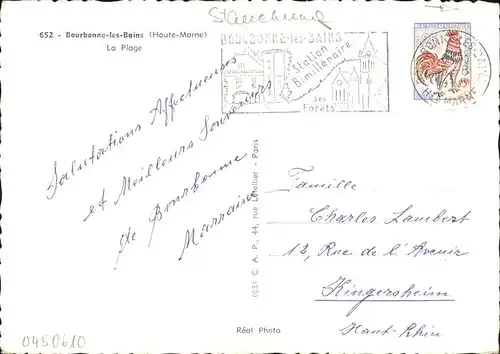 652 - Bourbonne-les-Bains (Haute-Marne)
La Plage
BOURBONNE-les-BAINS
Station
Bimillénaire
ses
Forêts
Hte MARNE
Salutations Affectueuses
et Meilleurs Souvenirs
de Bourbonne
Marraine
(03) C. A. P., 44, rue Letellier - Paris
Famille
Charles Lambert
13, Rue de l'Avenir
Kingersheim
Haut-Rhin
Réal Photo
0450610